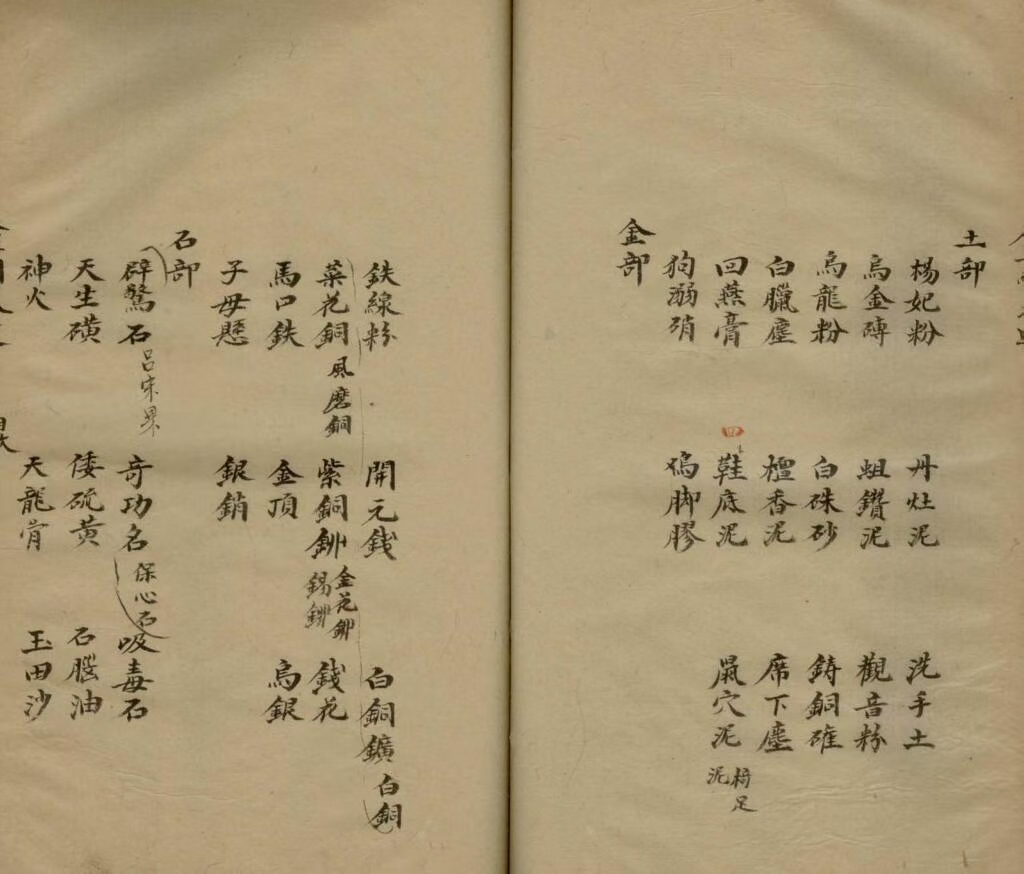 土部
楊妃粉 丹灶泥 洗手土
烏金磚 蛆鑽泥 觀音粉
烏龍粉 白硃砂 鋳銅碓
白臘塵 檀香泥 席下塵
回燕膏 鞋底泥 鼠穴泥 椅足泥
狗溺硝 脚膠
金部
鉄線粉 開元銭 白銅鑛 白銅
菜花銅 風磨銅 紫銅鉚 金花鉚 錫鉚 銭花
馬口鉄 金頂 烏銀
子母懸 銀銷
石部
辟驚石 呂宋果 奇功名 保心石 吸毒石
天生磺 倭硫黄 石腦油
神火 天龍骨 玉田沙